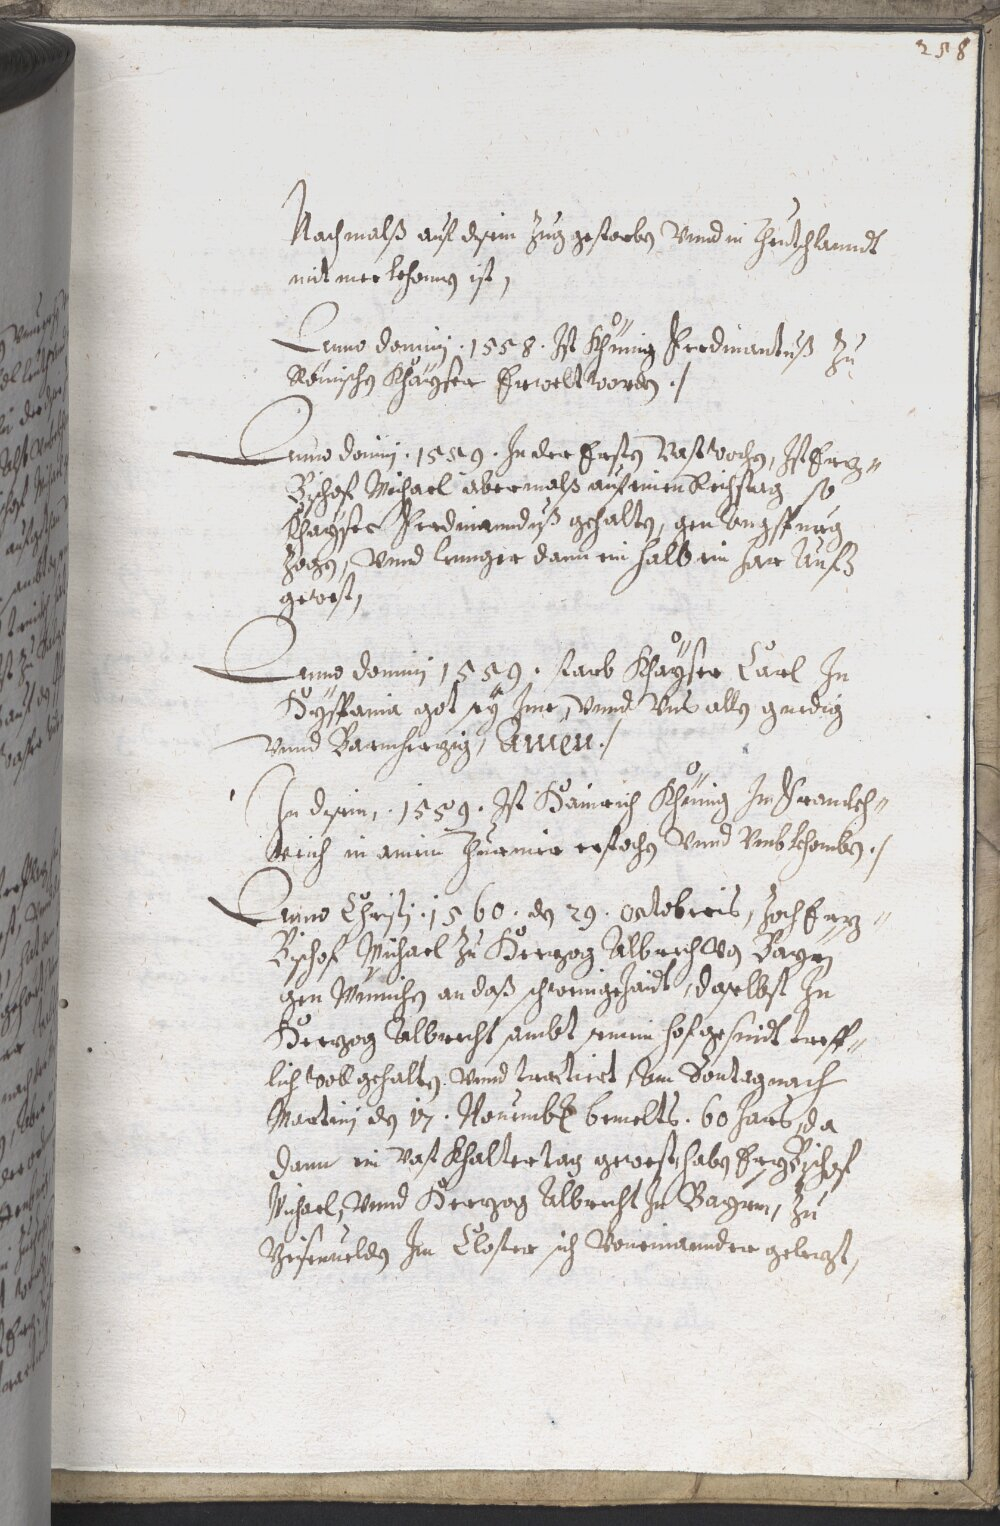 258
Nachmalß auf disem Zug gestorben Vnnd in Theutschlanndt
mit mer khomen ist,
Anno domini .1558. Ist Khünig Ferdinantuß zu
Römischen Khayser Erwelt worden ./
Anno domini .1559. In der Ersten Vasstwochen, Ist Erz„
Bischof Michael abermalß auf einen Reichstag so
Khayser Ferdinanndus gehalten, gen Augspurg
Zogen, Vnnd lennger dann ein halb ein Jar Auß
gewest,
Anno domini 1559. starb Khayser Carl In
Hyspania got sey Jme, Vnnd Vns allen gnedig
Vnnd Barmherzig, Amen ./
In disem, .1559. Ist Hainrich Khünig In Franckh„
Reich in ainem Thurnier erstochen Vnnd Vmbkhomben ./
Anno Christi .1560. den 29. Octobris, Zoch Erz„
Bischof Michael Zu Herzog Albrecht Von Bayrn
gen München an daß schweingehaidt, daselbst In
Herzog Albrecht sambt seinem hofgesindt treff„
lich woll gehalten Vnnd tractiert, Am Sontag nach
Martinj den 17. Nouemb bemelts .60 Jars, da
dann ein Vast Khalter tag gewest, haben Erzbischof
Michael, Vnnd Herzog Albrecht In Bayrn, Zu
Im Closter sich Voneinannder geletzt,